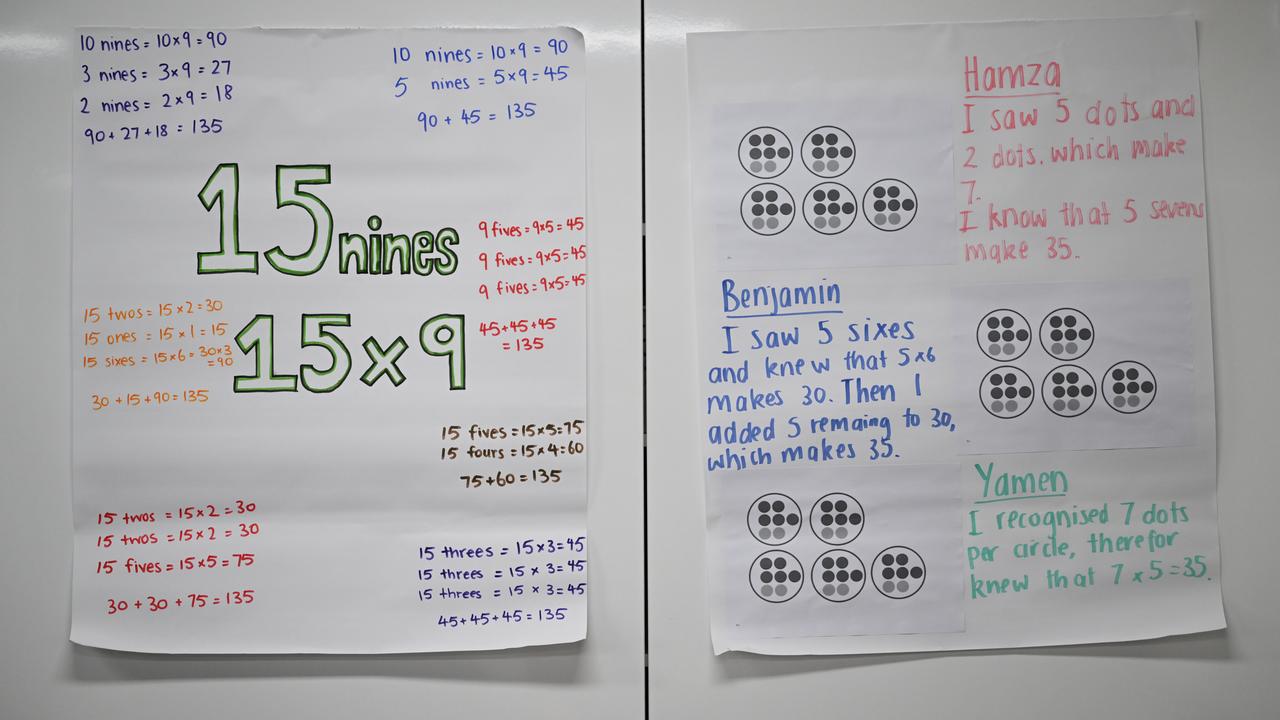 10 nines = 10×9 = 90
3 nines = 3×9 = 27
2 nines = 2×9 = 18
90+27+18 = 135
10 nines = 10×9 = 90
5 nines = 5×9 = 45
90 + 45 = 135
15 nines
15×9
9 fives = 9×5 = 45
9 fives = 9×5 = 45
9 fives = 9×5 = 45
45+45+45
= 135
15 twos = 15×2 = 30
15 ones = 15×1 = 15
15 sixes = 15×6 = 30×3
= 90
30 + 15 + 90 = 135
15 fives = 15×5 = 75
15 fours = 15×4 = 60
75+60 = 135
15 twos = 15×2 = 30
15 twos = 15×2 = 30
15 fives = 15×5 = 75
30 + 30 + 75 = 135
15 threes = 15×3 = 45
15 threes = 15 × 3 = 45
15 threes = 15 × 3 = 45
45+45+45 = 135
Hamza
I saw 5 dots and
2 dots. which make
7.
I know that 5 sevens
make 35.
Benjamin
I saw 5 sixes
and knew that 5×6
makes 30. Then I
added 5 remaing to 30,
which makes 35.
Yamen
I recognised 7 dots
per circle, therefor
knew that 7 × 5 = 35.